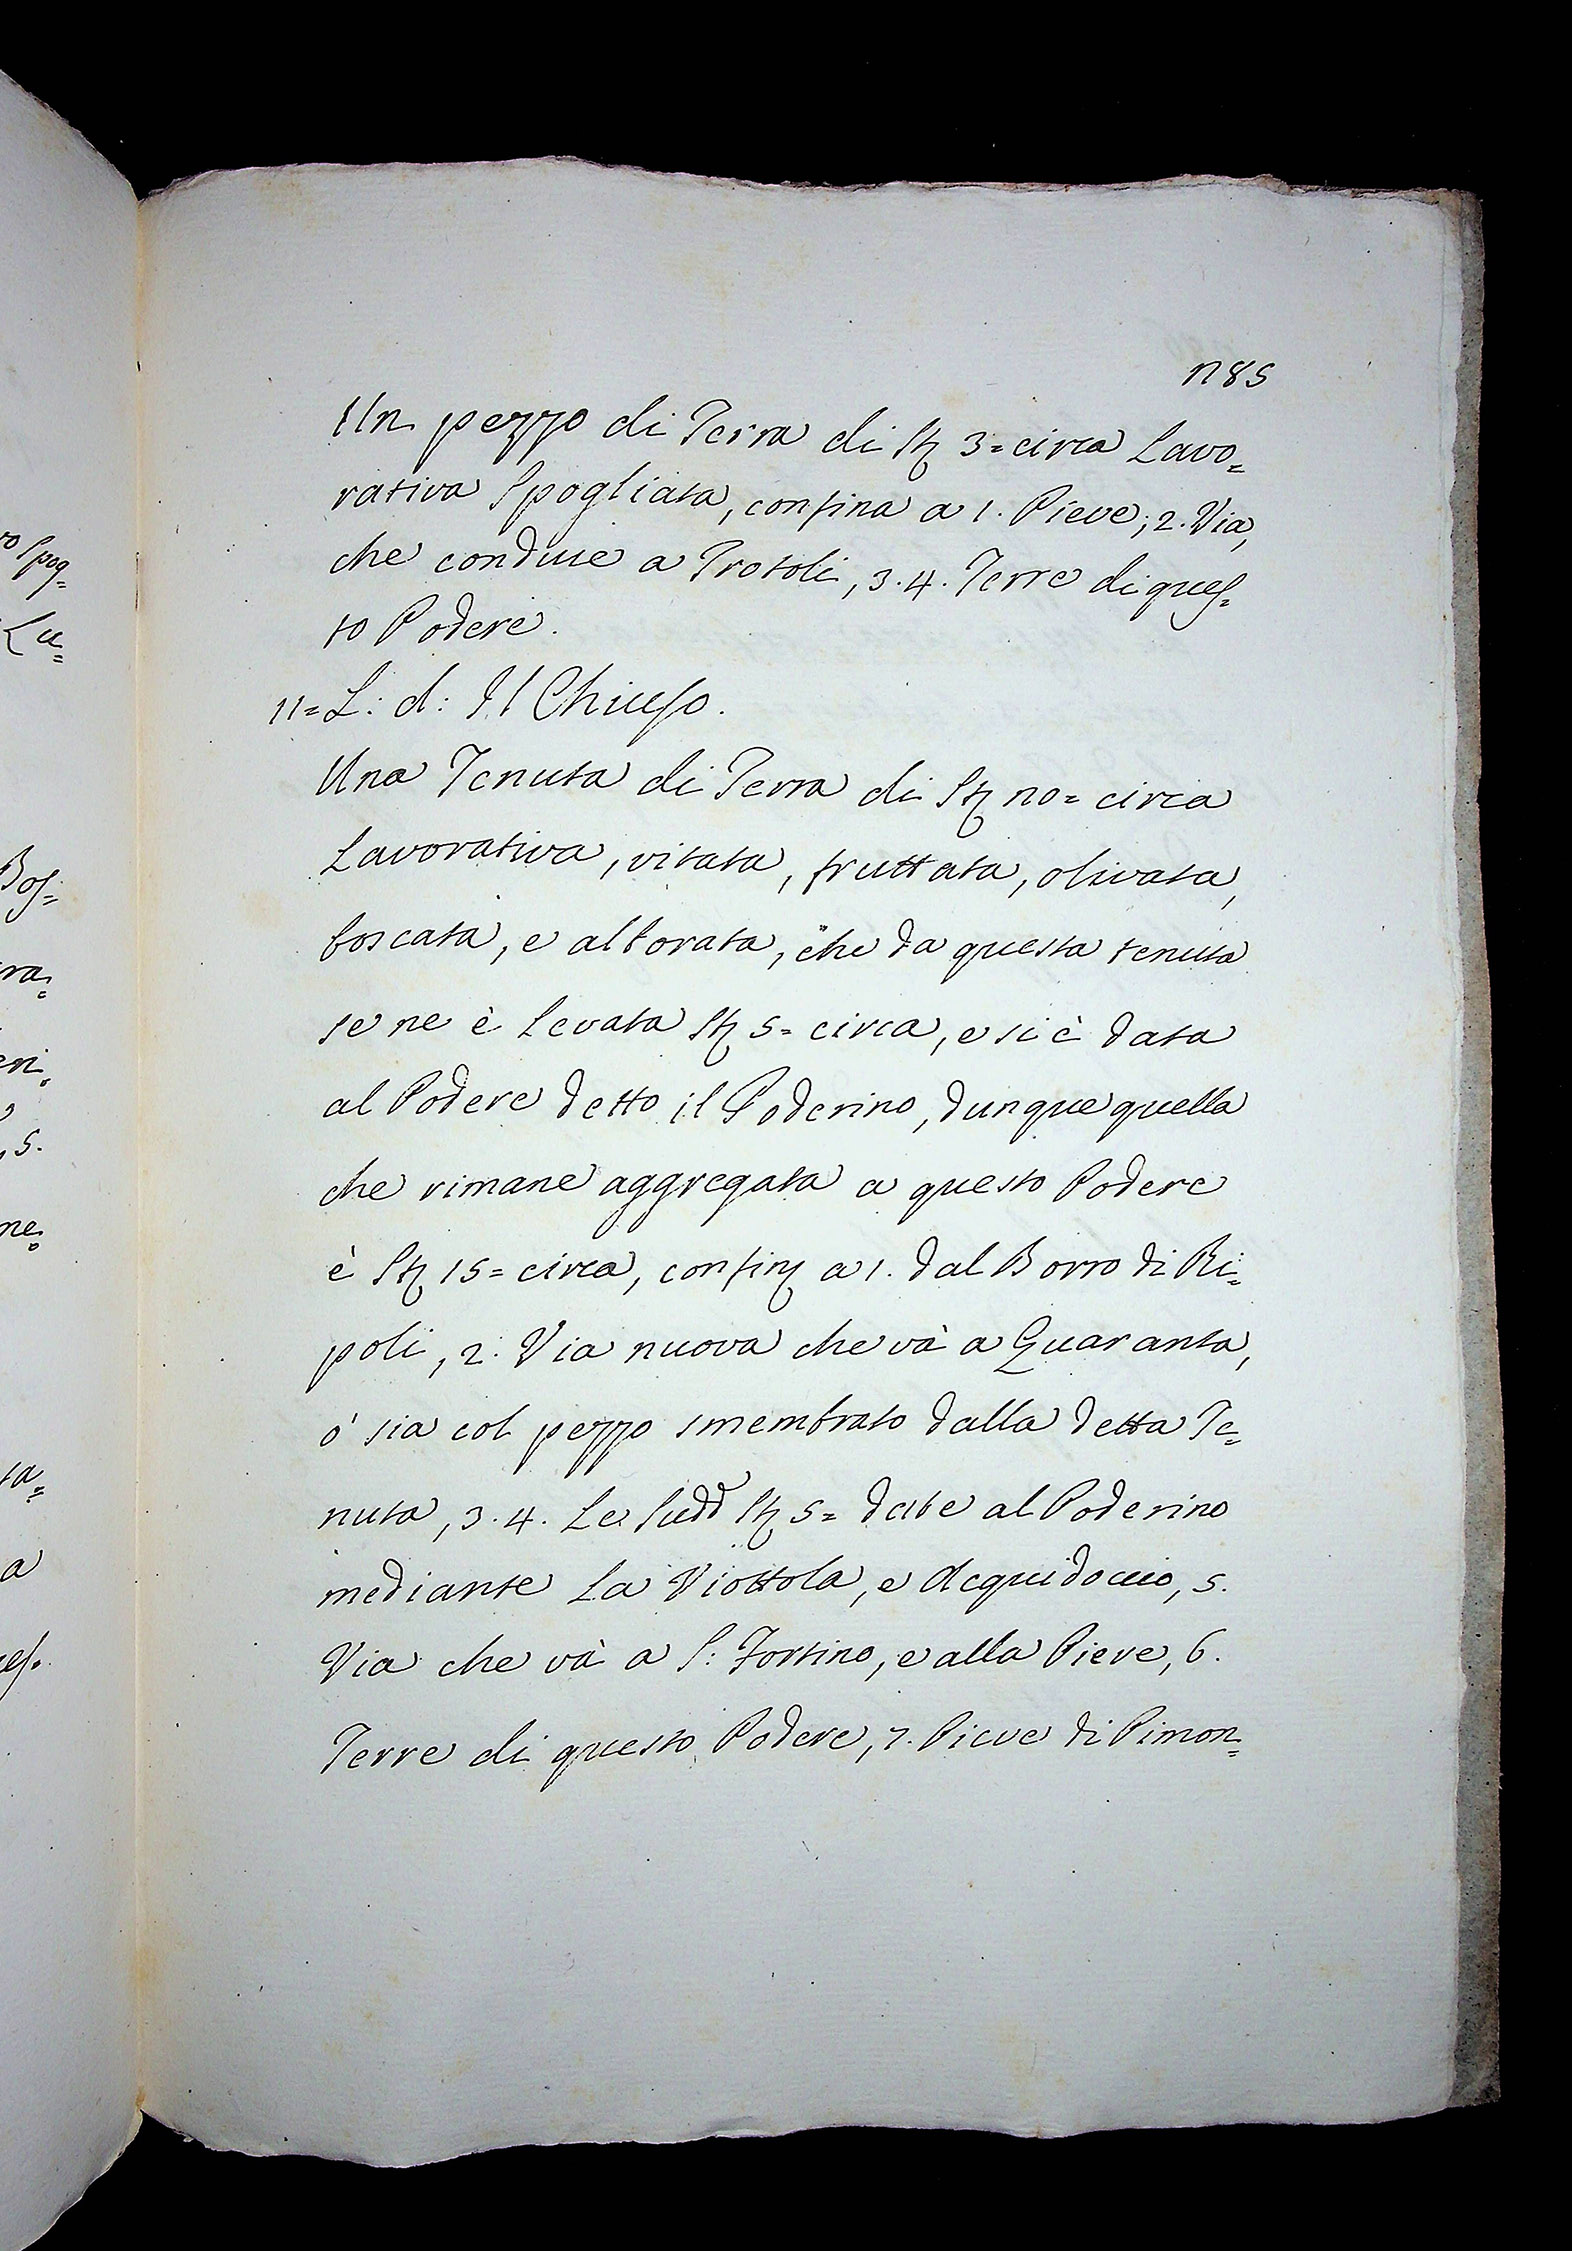 285
Un pezzo di Terra di St. 3= circa Lavo=
rativa Spogliata, confina a 1. Pieve, 2. Via,
che conduce a Trotoli, 3. 4. Terre di ques=
to Podere.
11= L: d: Il Chiuso.
Una Tenuta di Terra di St. 20= circa
Lavorativa, vitata, fruttata, olivata,
boscata, e alborata, che da questa tenuta
se ne è Levata St. 5= circa, e si è data
al Podere detto il Poderino, dunque quella
che rimane aggregata a questo Podere
è St. 15= circa, confin. a 1. dal Borro di Ri=
poli, 2. Via nuova che và a Quaranta,
ò sia col pezzo smembrato dalla detta Te=
nuta, 3. 4. Le Sudd. St. 5= date al Poderino
mediante La Viottola, e Acquidoccio, 5.
Via che và a S: Fortino, e alla Pieve, 6.
Terre di questo Podere, 7. Pieve di Pimon=
ro Spog=
Lu=
Bos=
ra=
ri=
, 5.
ne=
ta=
a